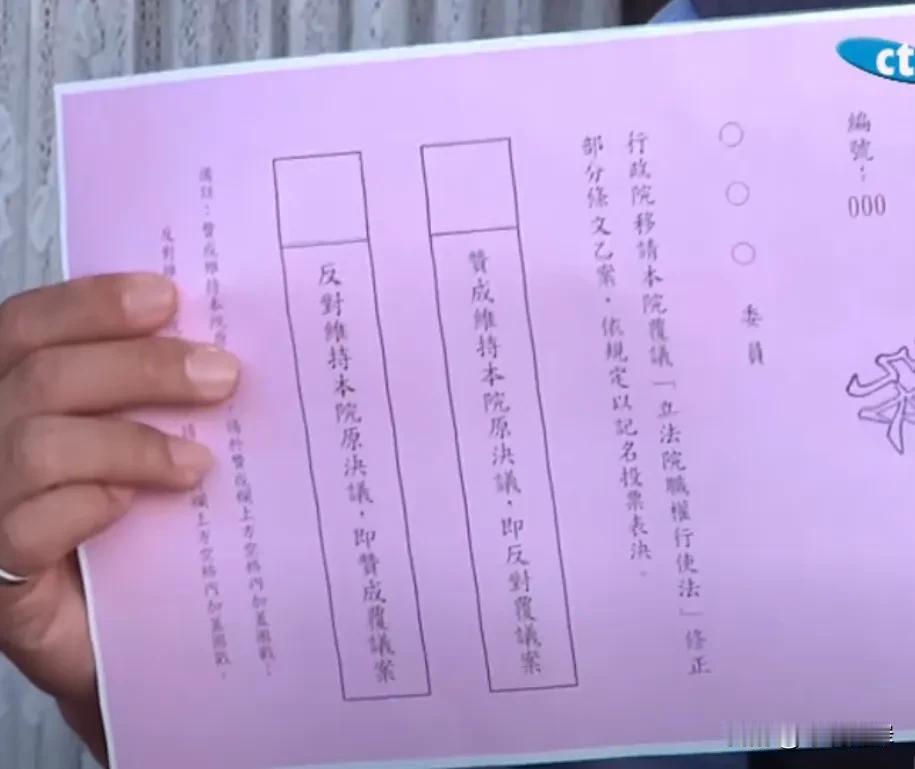 ct
編號：000
○○○委員
行政院移請本院覆議「立法院職權行使法」修正
部分條文乙案，依規定以記名投票表決。
贊成維持本院原決議，即反對覆議案
反對維持本院原決議，即贊成覆議案
備註：贊成維持本院原 ，請於贊成欄上方空格內加蓋圈戳。
反對維 欄上方空格內加蓋圈戳。